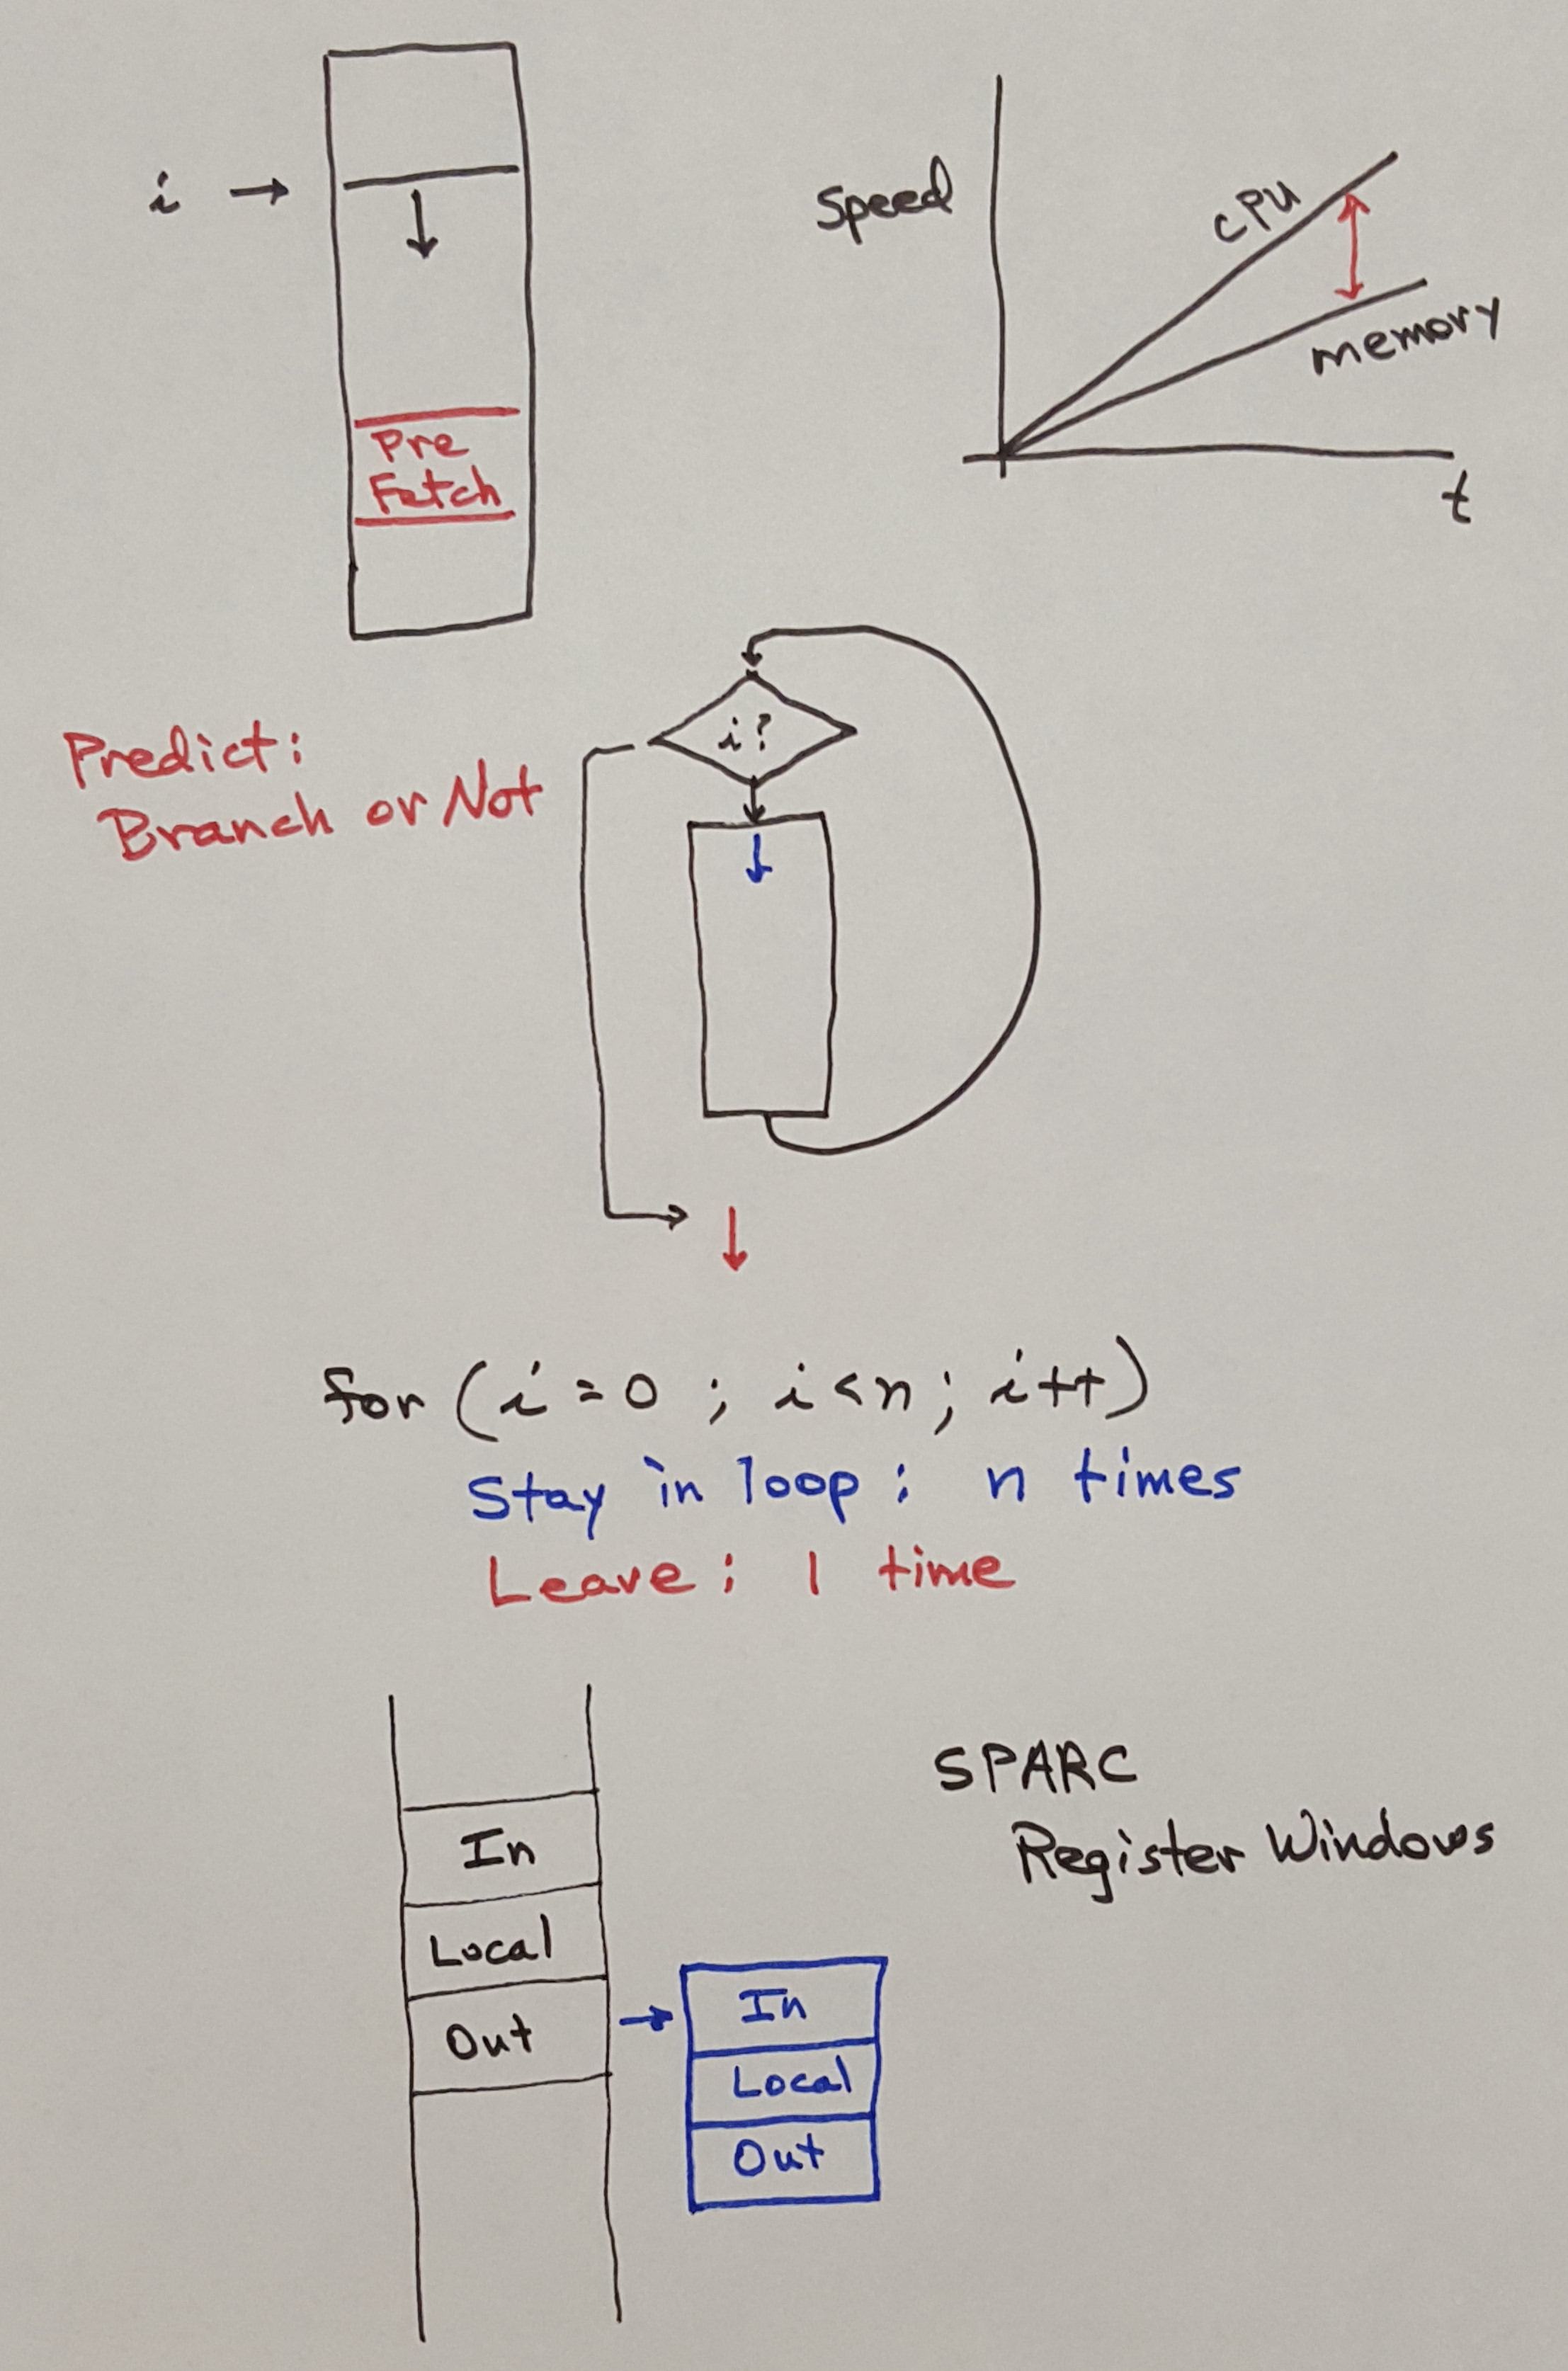 i →
Speed
CPU
memory
t
Pre
Fetch
i?
Predict:
Branch or Not
for (i = 0 ; i < n ; i++)
Stay in loop : n times
Leave : 1 time
SPARC
Register Windows
In
Local
Out
In
Local
Out